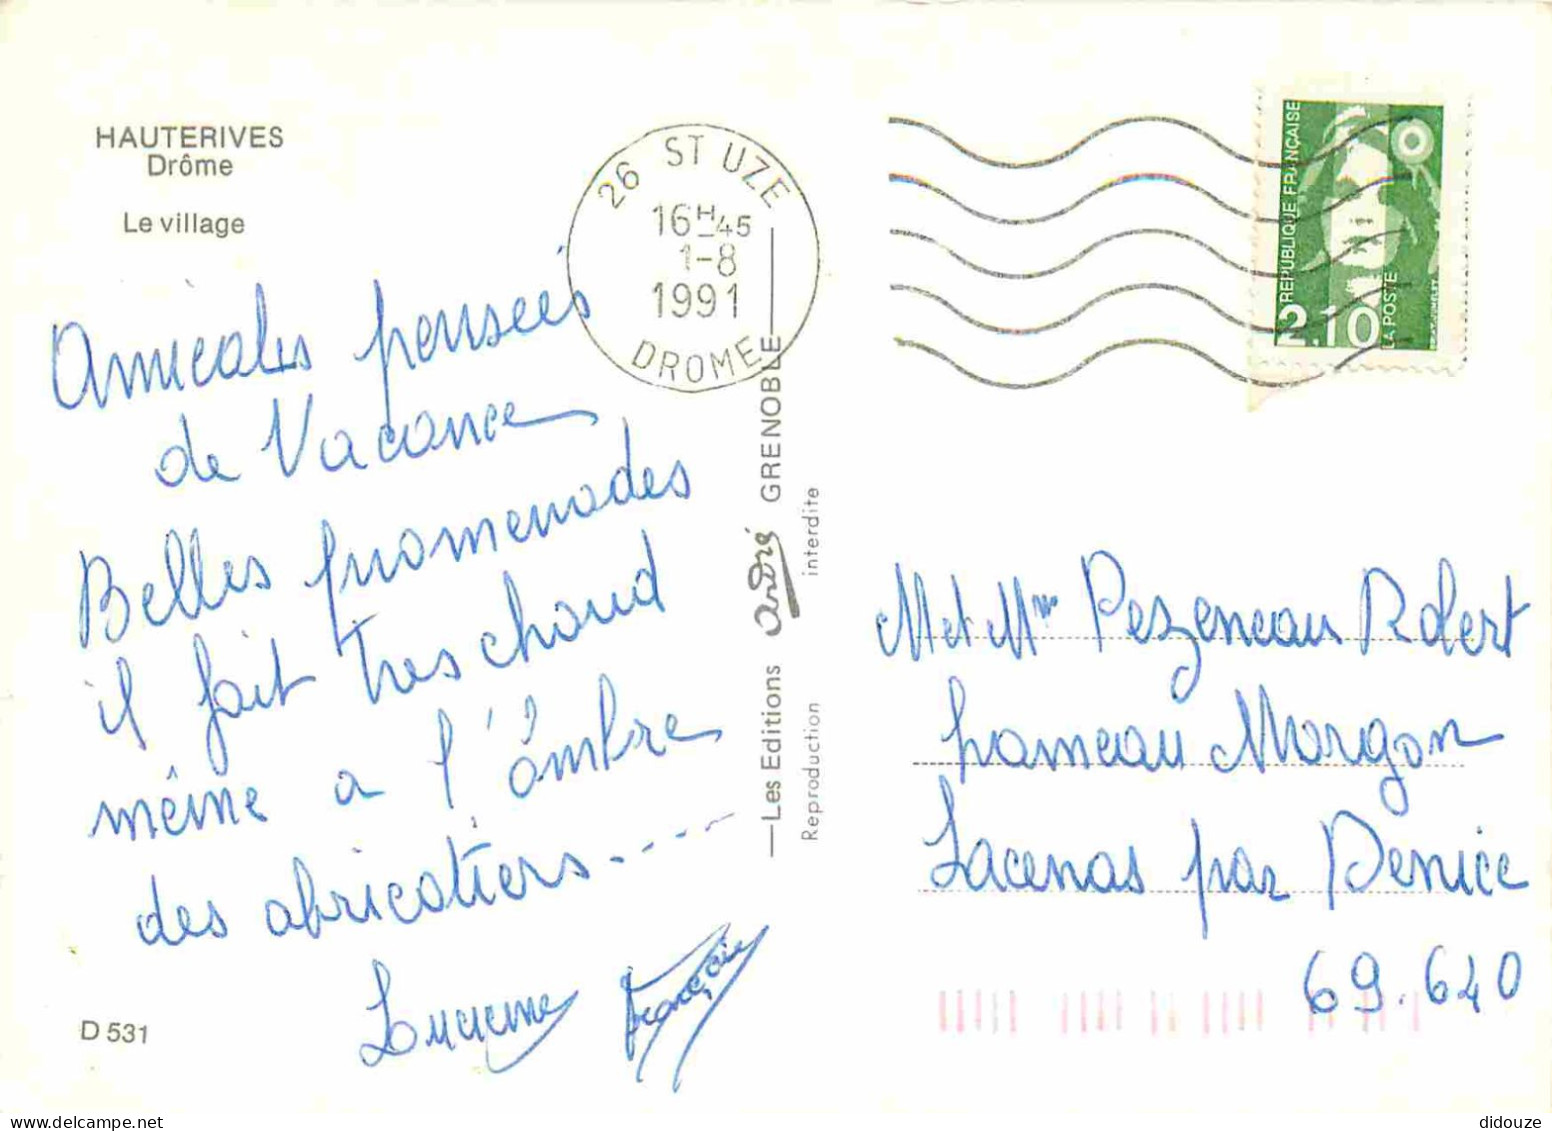 HAUTERIVES
Drôme
Le village
Amicales pensées
de Vacance
Belles promenades
il fait tres chaud
même a l'ômbre
des abricotiers.----
Lucienne François
D 531
26 ST UZE
16H45
1-8
1991
DROME
Les Editions André GRENOBLE
Reproduction interdite
REPUBLIQUE FRANÇAISE
2,10
LA POSTE
M et Mme Pezeneau Robert
hameau Morgon
Lacenas par Denice
69.640
didouze